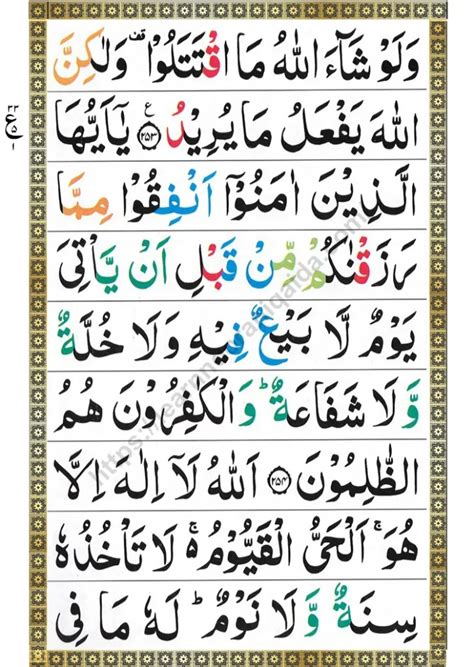 وَلَوْ شَآءَ اللهُ مَا اقْتَتَلُوْا ۗ وَلٰكِنَّ
اللهَ يَفْعَلُ مَا يُرِيْدُ ۝۲۵۳ ع يٰۤاَيُّهَا
الَّذِيْنَ اٰمَنُوْۤا اَنْفِقُوْا مِمَّا
رَزَقْنٰكُمْ مِّنْ قَبْلِ اَنْ يَّاْتِىَ
يَوْمٌ لَّا بَيْعٌ فِيْهِ وَلَا خُلَّةٌ
وَّلَا شَفَاعَةٌ ؕ وَالْكٰفِرُوْنَ هُمُ
الظّٰلِمُوْنَ ۝۲۵۴ اَللهُ لَاۤ اِلٰهَ اِلَّا
هُوَ ۚ اَلْحَىُّ الْقَيُّوْمُ ۚ۬ لَا تَاْخُذُهٗ
سِنَةٌ وَّلَا نَوْمٌ ؕ لَهٗ مَا فِى